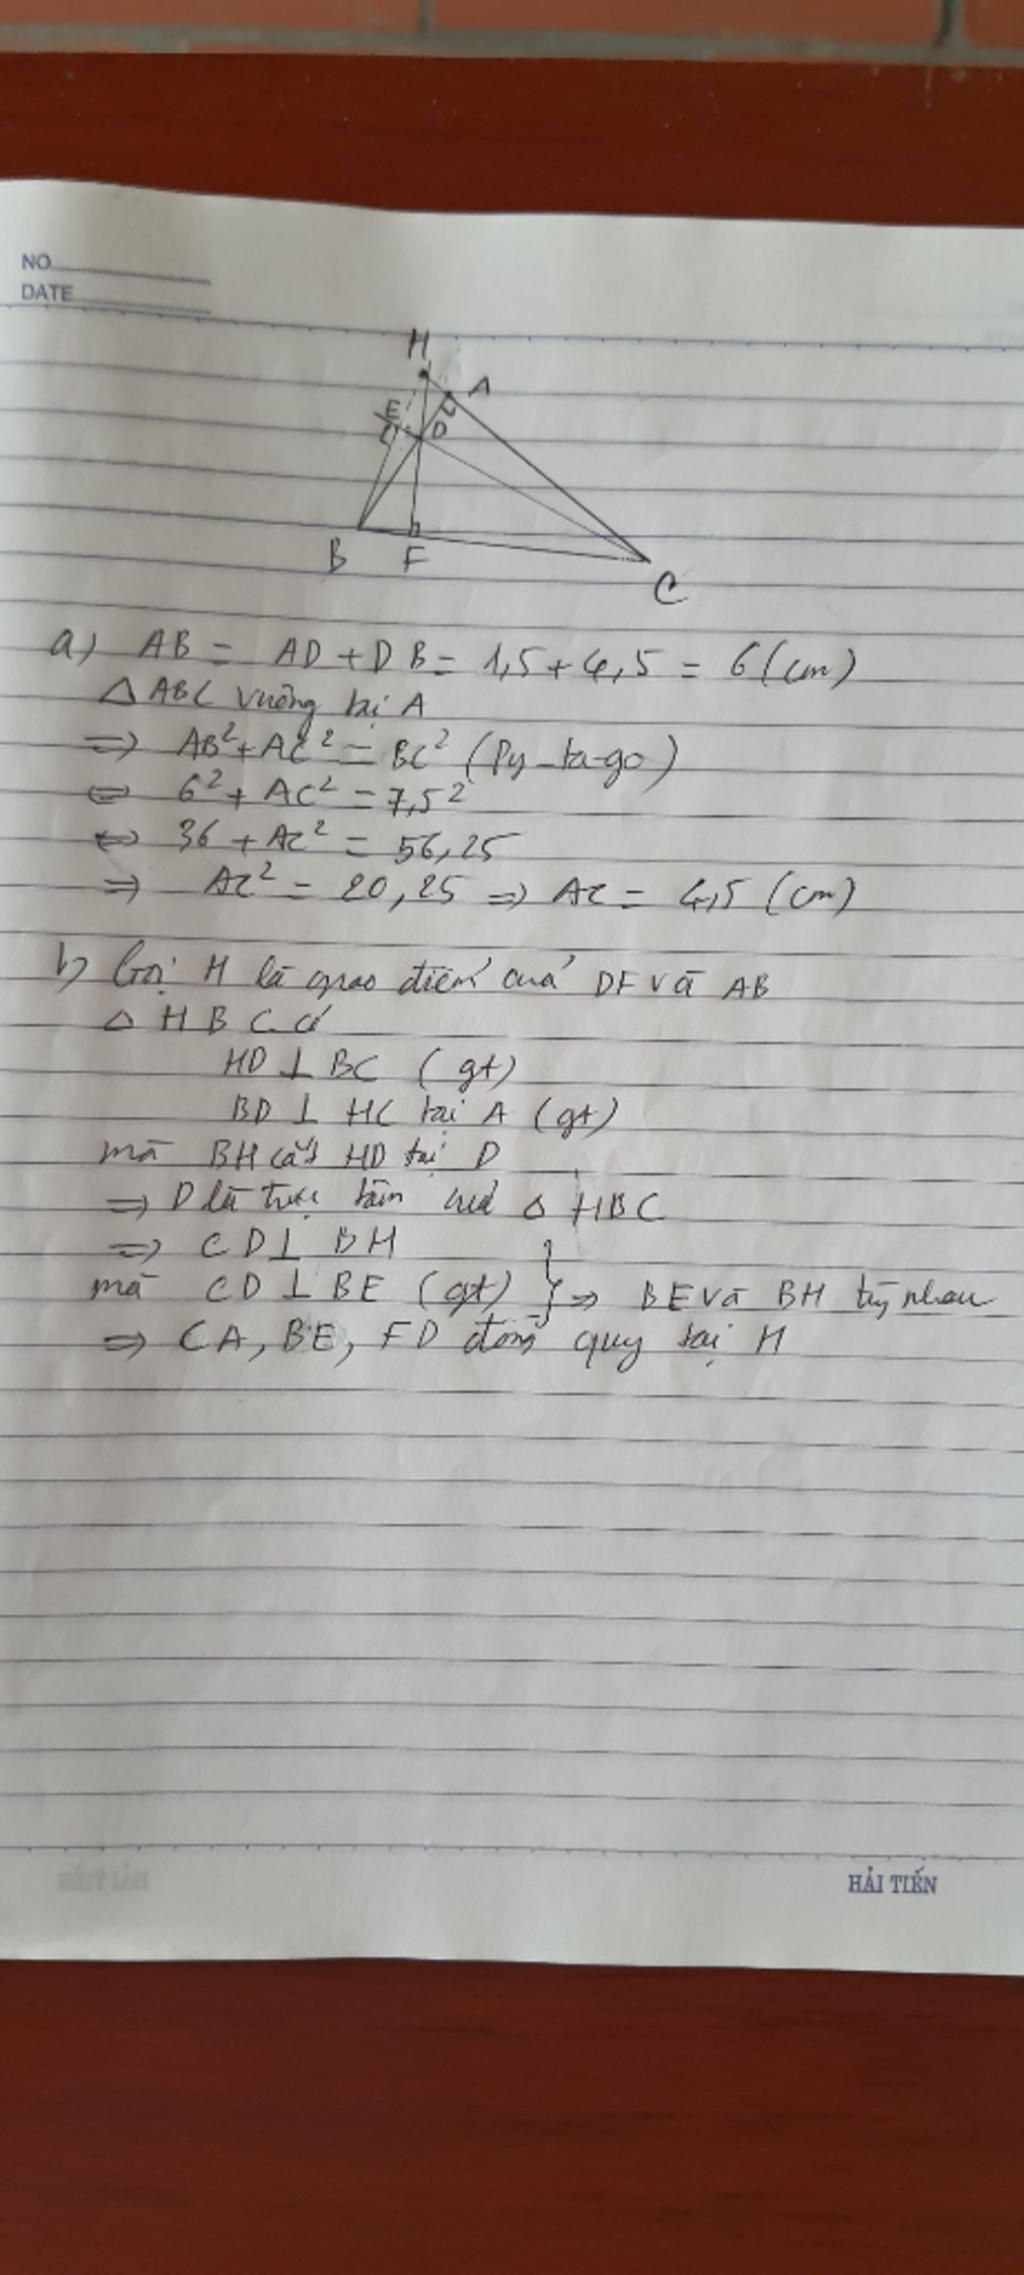 NO
DATE
H
A
E
D
B F
C
a) AB = AD + DB = 1,5 + 4,5 = 6 (cm)
△ ABC vuông tại A
=> AB² + AC² = BC² (Py-ta-go)
<=> 6² + AC² = 7,5²
<=> 36 + AC² = 56,25
=> AC² = 20,25 => AC = 4,5 (cm)
b) Gọi H là giao điểm của DF và AB
△ HBC có
HD ⊥ BC (gt)
BD ⊥ HC tại A (gt)
mà BH cắt HD tại D
=> D là trực tâm của △ HBC
=> CD ⊥ BH
mà CD ⊥ BE (gt) } => BE và BH trùng nhau
=> CA, BE, FD đồng quy tại H
HẢI TIẾN